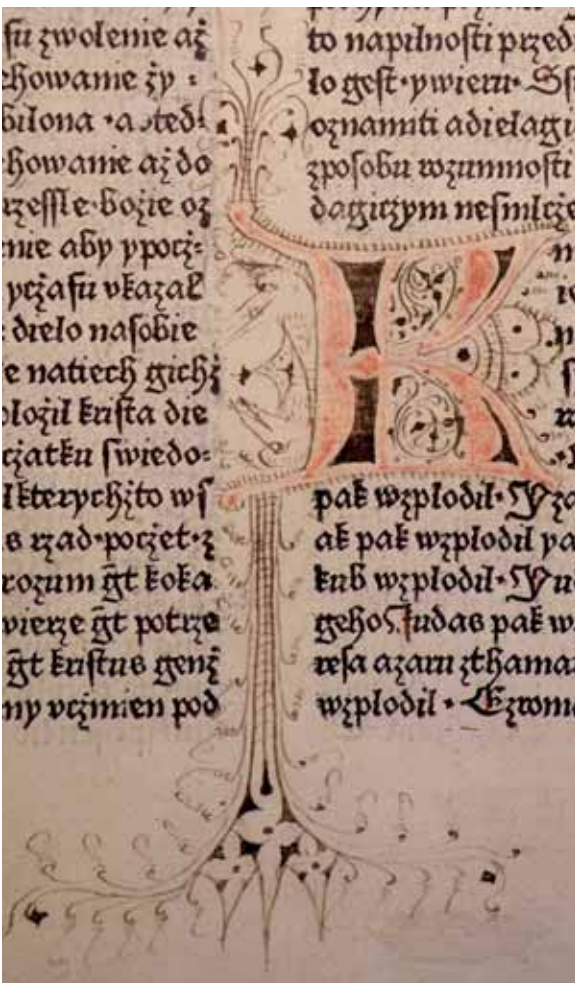 ſu zwolenie až
chowanie ży :
bilona • a ted:
howanie aż do
rzeſſle•bożie oz
nie aby ypocż:
ycżaſu vkazal
dielo naſobie
e natiech gichż
oložil kriſta die
cżatku ſwiedo:
lkterychżto wſ
s rzad•pocżet•ż
rozum g̃t koka
wierze g̃t potrze
g̃t kriſtus genż
ny vcżinien pod
to napilnoſti przed
lo geſt•ywieru•
oznamiti adielagi
zpoſobu rozumnoſti
dagiczym neſmlcże
K
pak wzplodil•
ak pak wzplodil ya
kub wzplodil•
geho Judas pak w
reſa azaru zthama
wzplodil • Ezrom